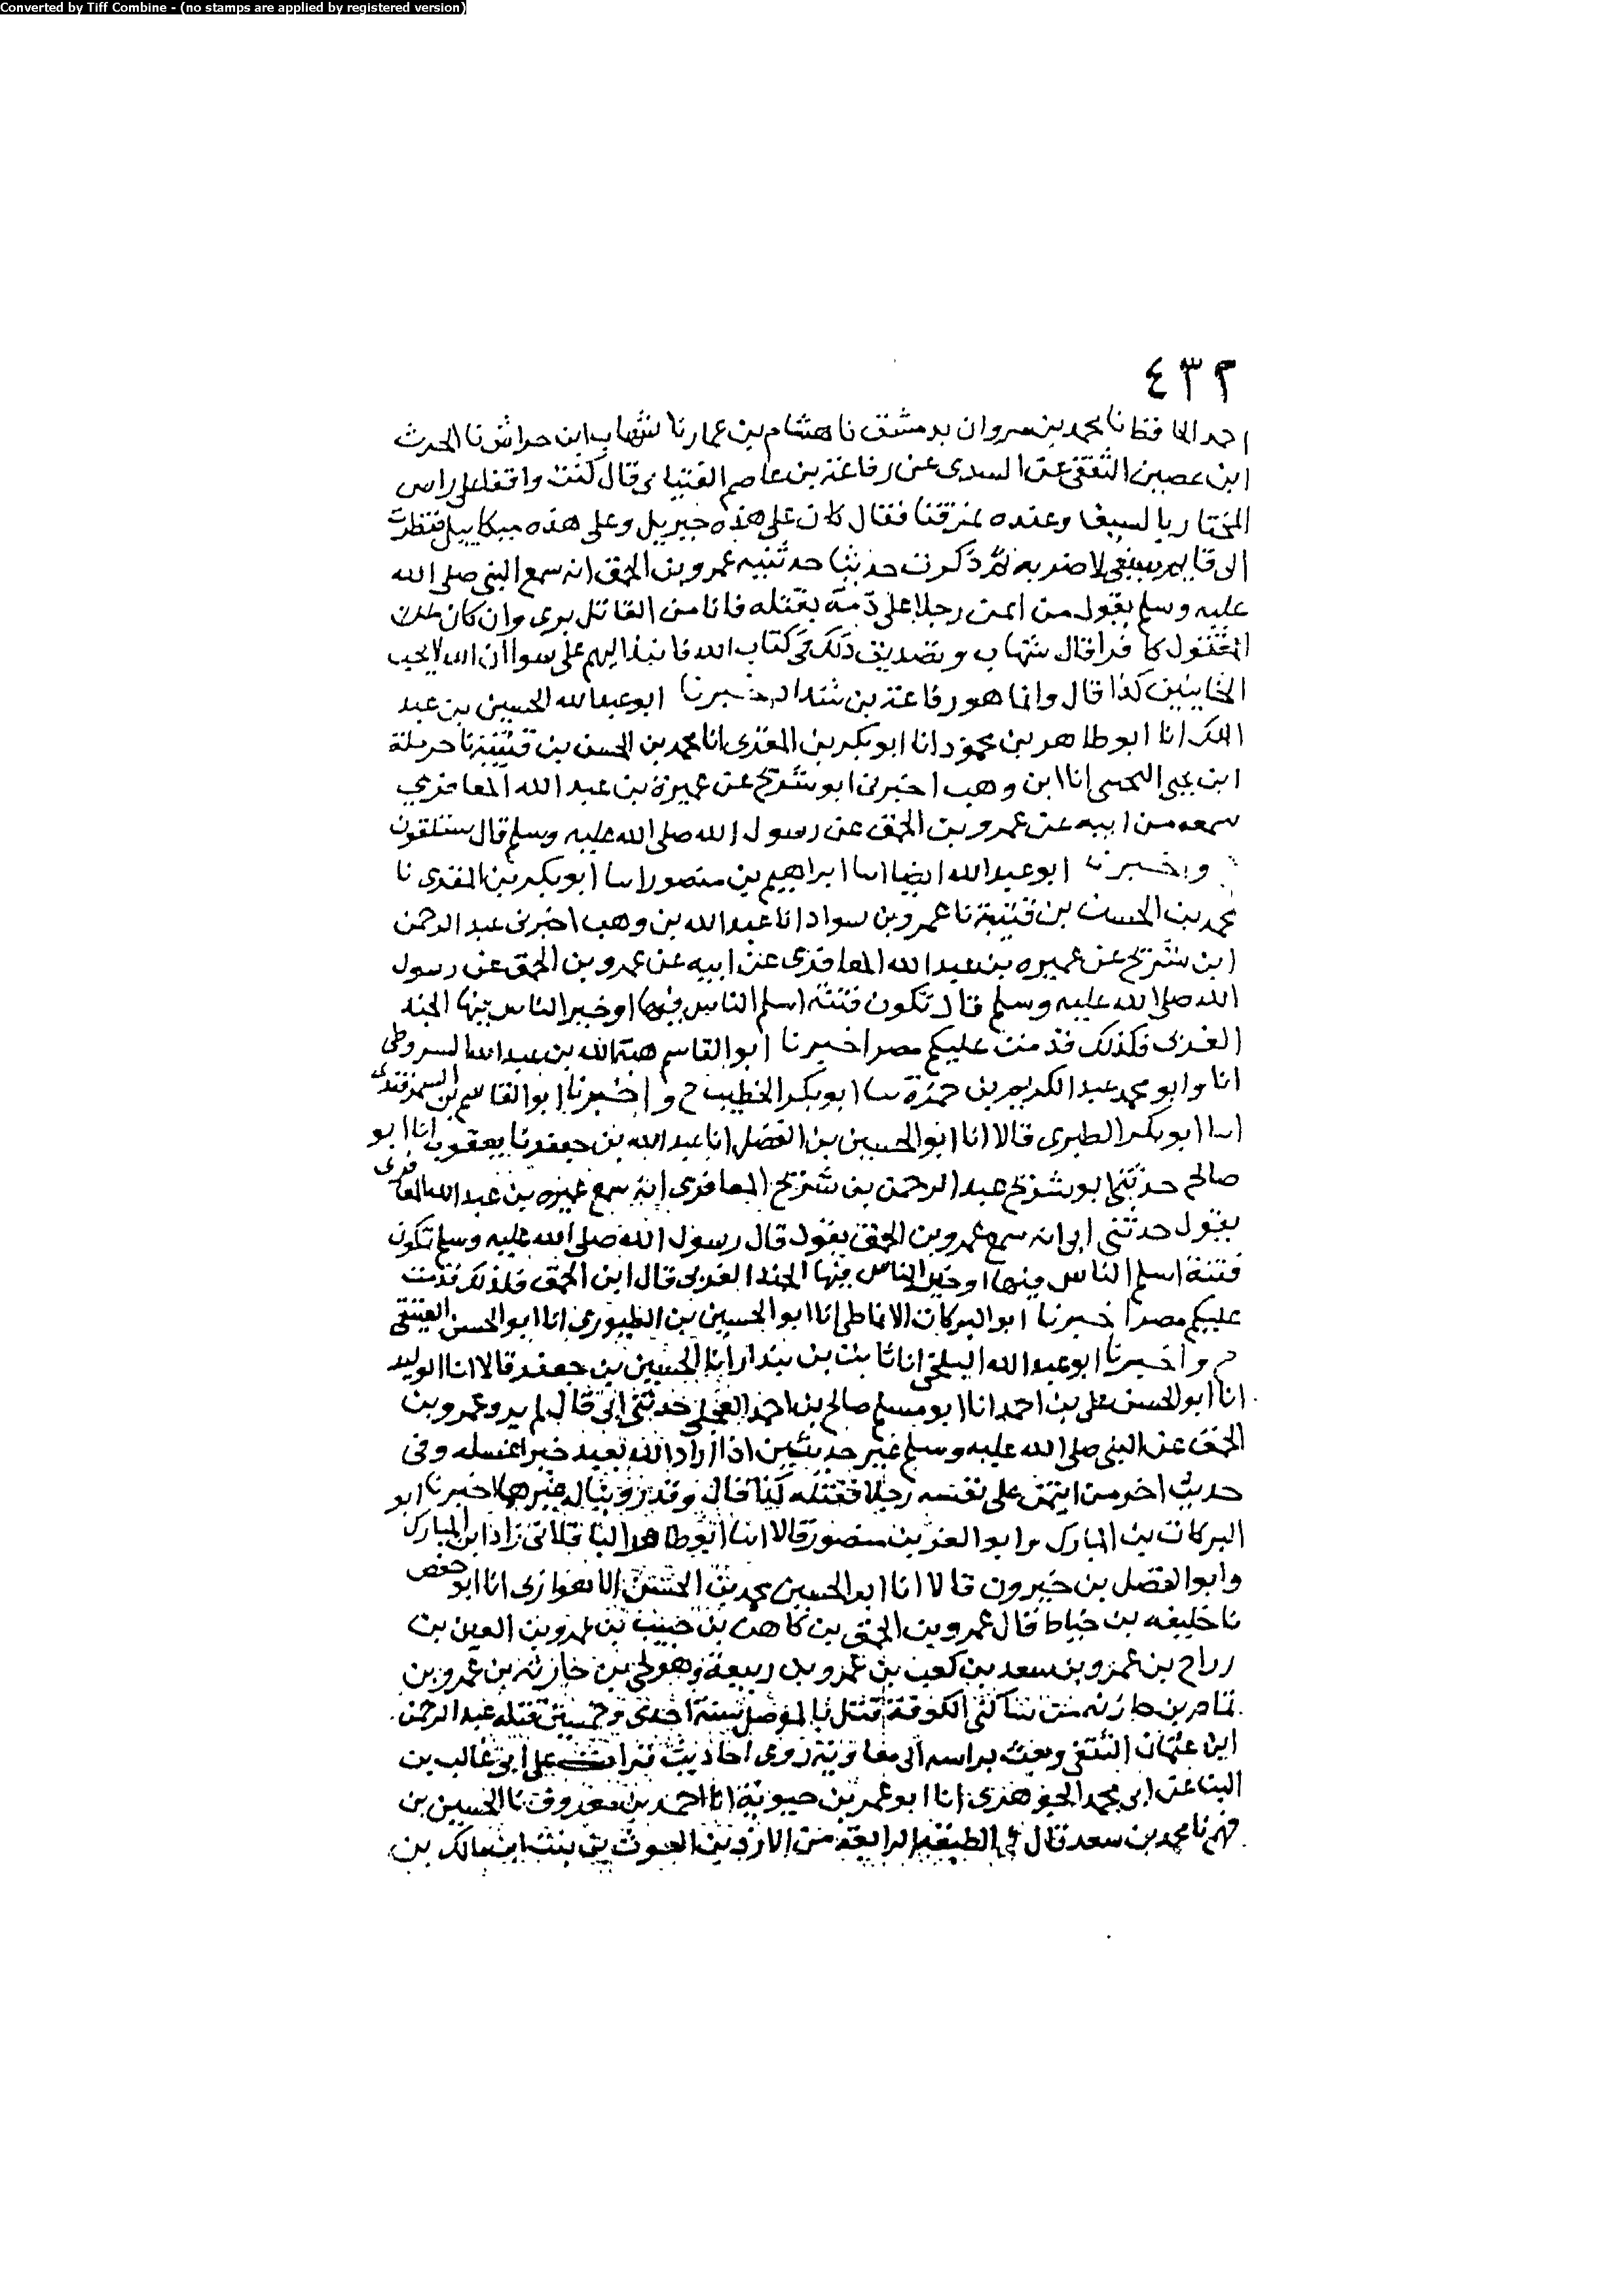 Converted by Tiff Combine - (no stamps are applied by registered version)
٤٣٢
احمد الحافظ نا محمد بن مروان بدمشق نا هشام بن عمار نا شهاب ابن حراش نا الحرث
ابن عصين الثقفى عن السدى عن رفاعة بن عاصم الفتيانى قال كنت واقفا على راس
المختار بالسيف وعنده نمرقنا فقال كان على هذه جبريل وعلى هذه ميكاييل فنظرت
الى قايم سيفى لاضربه ثم ذكرت حديثا حدثنيه عمرو بن الحمق انه سمع النبى صلى الله
عليه وسلم يقول من امن رجلا على دمه بقتله فانا من القاتل برى وان كان
المقتول كافرا قال شهاب وتصديق ذلك فى كتاب الله فانبذ اليهم على سوا ان الله لا يحب
الخاينين كذا قال وانما هو رفاعة بن شداد اخبرنا ابو عبد الله الحسين بن عبد
الملك انا ابو طاهر بن محمود انا ابو بكر بن المقرى انا محمد بن الحسن بن قتيبة نا حرملة
ابن يحيى انا ابن وهب اخبرنى ابو شريح عن عميرة بن عبد الله المعافرى
سمعه من ابيه عن عمرو بن الحمق عن رسول الله صلى الله عليه وسلم قال ستلقون
واخبرنا ابو عبد الله ايضا انا ابراهيم بن منصور انا ابو بكر بن المقرى نا
محمد بن الحسن بن قتيبة نا عمرو بن سواد انا عبد الله بن وهب اخبرنى عبد الرحمن
ابن شريح عن عميره بن عبد الله المعافرى عن ابيه عن عمرو بن الحمق عن رسول
الله صلى الله عليه وسلم قال تكون فتنة اسلم الناس فيها او خير الناس فيها الجند
الغربى فلذلك قدمت عليكم مصر اخبرنا ابو القاسم هبة الله بن عبد الله السروطى
انا وابو محمد عبد الكريم بن حمزة نا ابو بكر الخطيب ح واخبرنا ابو القاسم بن السمرقندى
انا ابو بكر الطبرى قالا انا ابو الحسين بن الفضل انا عبد الله بن جعفر نا يعقوب انا ابو
صالح حدثنى ابو شريح عبد الرحمن بن شريح المعافرى انه سمع عميره بن عبد الله المعافرى
يقول حدثنى ابى انه سمع عمرو بن الحمق يقول قال رسول الله صلى الله عليه وسلم تكون
فتنة اسلم الناس فيها او خير الناس فيها الجند الغربى قال ابن الحمق فلذلك قدمت
عليكم مصر اخبرنا ابو البركات الانماطى انا ابو الحسين بن الطيورى انا ابو الحسن العتيقى
ح واخبرنا ابو عبد الله البلخى انا ثابت بن بندار انا الحسين بن جعفر قالا انا الوليد
انا ابو الحسن على بن احمد انا ابو مسلم صالح بن احمد العجلى حدثنى ابى قال لم يرو عمرو بن
الحمق عن النبى صلى الله عليه وسلم غير حديثين اذا اراد الله بعبد خيرا غسله وفى
حديث اخر من ايتمن على نفسه رجلا فقتله كذا قال وقد روينا له غيرهما اخبرنا ابو
البركات بن المبارك وابو العز بن منصور قالا انا ابو طاهر الباقلانى زاد ابن المبارك
وابو الفضل بن خيرون قالا انا ابو الحسين محمد بن الحسن الاهوازى انا ابو حفص
نا خليفه بن خياط قال عمرو بن الحمق بن كاهن بن حبيب بن عمرو بن القين بن
رزاح بن عمرو بن سعد بن كعب بن عمرو بن ربيعة وهو لحى بن حارثه بن عمرو بن
عامر بن حارثه ساكنى الكوفة قتل بالموصل سنة احدى وخمسين قتله عبد الرحمن
ابن عثمان الثقفى وبعث براسه الى معاوية روى احاديث قرات على ابى غالب بن
البنا عن ابى محمد الجوهرى انا ابو عمر بن حيوية انا احمد بن معروف نا الحسين بن
فهم نا محمد بن سعد قال فى الطبقة الرابعة من الازد بن الغوث بن نبت ابن مالك بن